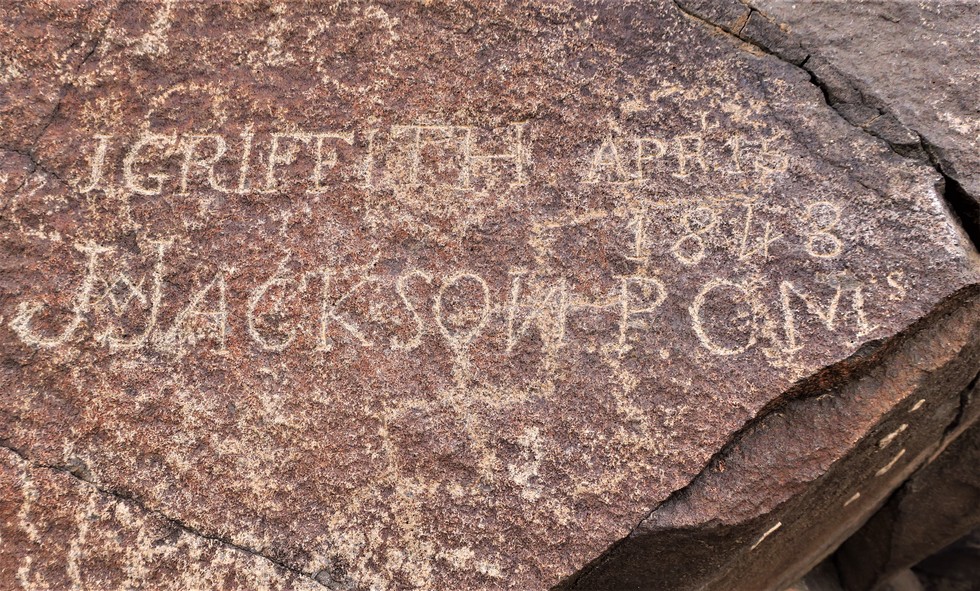 I GRIFFITH APR 15
1848
J W JACKSON P. OMI